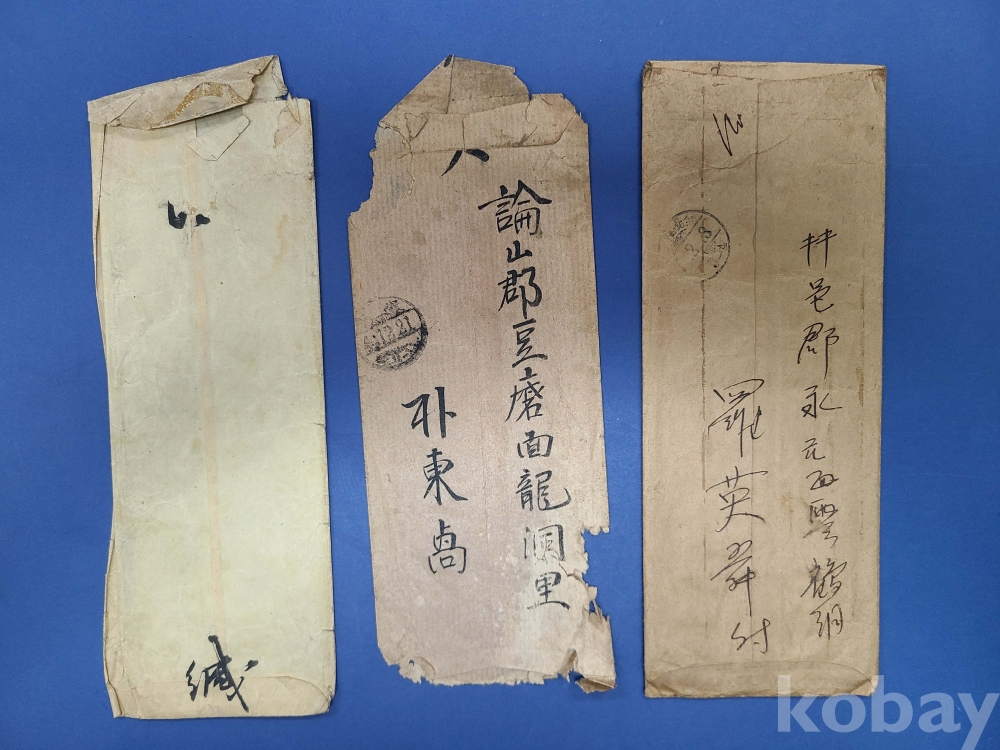 緘
論山郡豆磨面龍洞里
朴東卨
12.21
井邑郡永元面鶴洞
羅英
kobay